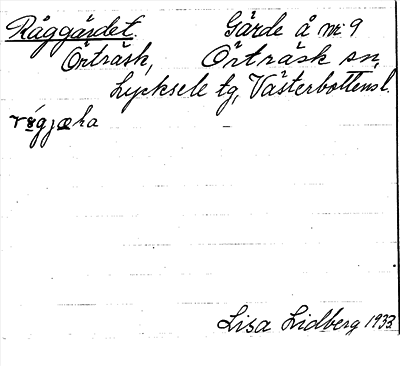 Råggärdet. Gärde å nr 9
Örträsk, Örträsk sn,
Lycksele tg, Västerbottensl.
Lisa Lidberg 1933